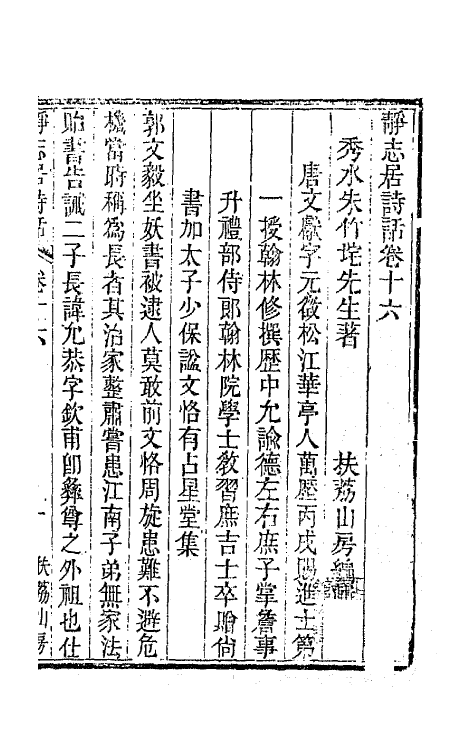 靜志居詩話卷十六
秀水朱竹垞先生著 扶荔山房編
唐文獻字元徵松江華亭人萬歷丙戌賜進士第
一授翰林修撰歷中允諭德左右庶子掌詹事
升禮部侍郎翰林院學士敎習庶吉士卒贈尙
書加太子少保諡文恪有占星堂集
郭文毅坐妖書被逮人莫敢前文恪周旋患難不避危
機當時稱爲長者其治家整肅嘗患江南子弟無家法
貽書告誡二子長諱允恭字欽甫卽彝尊之外祖也仕
靜志居詩話 卷十六 一 扶荔山房